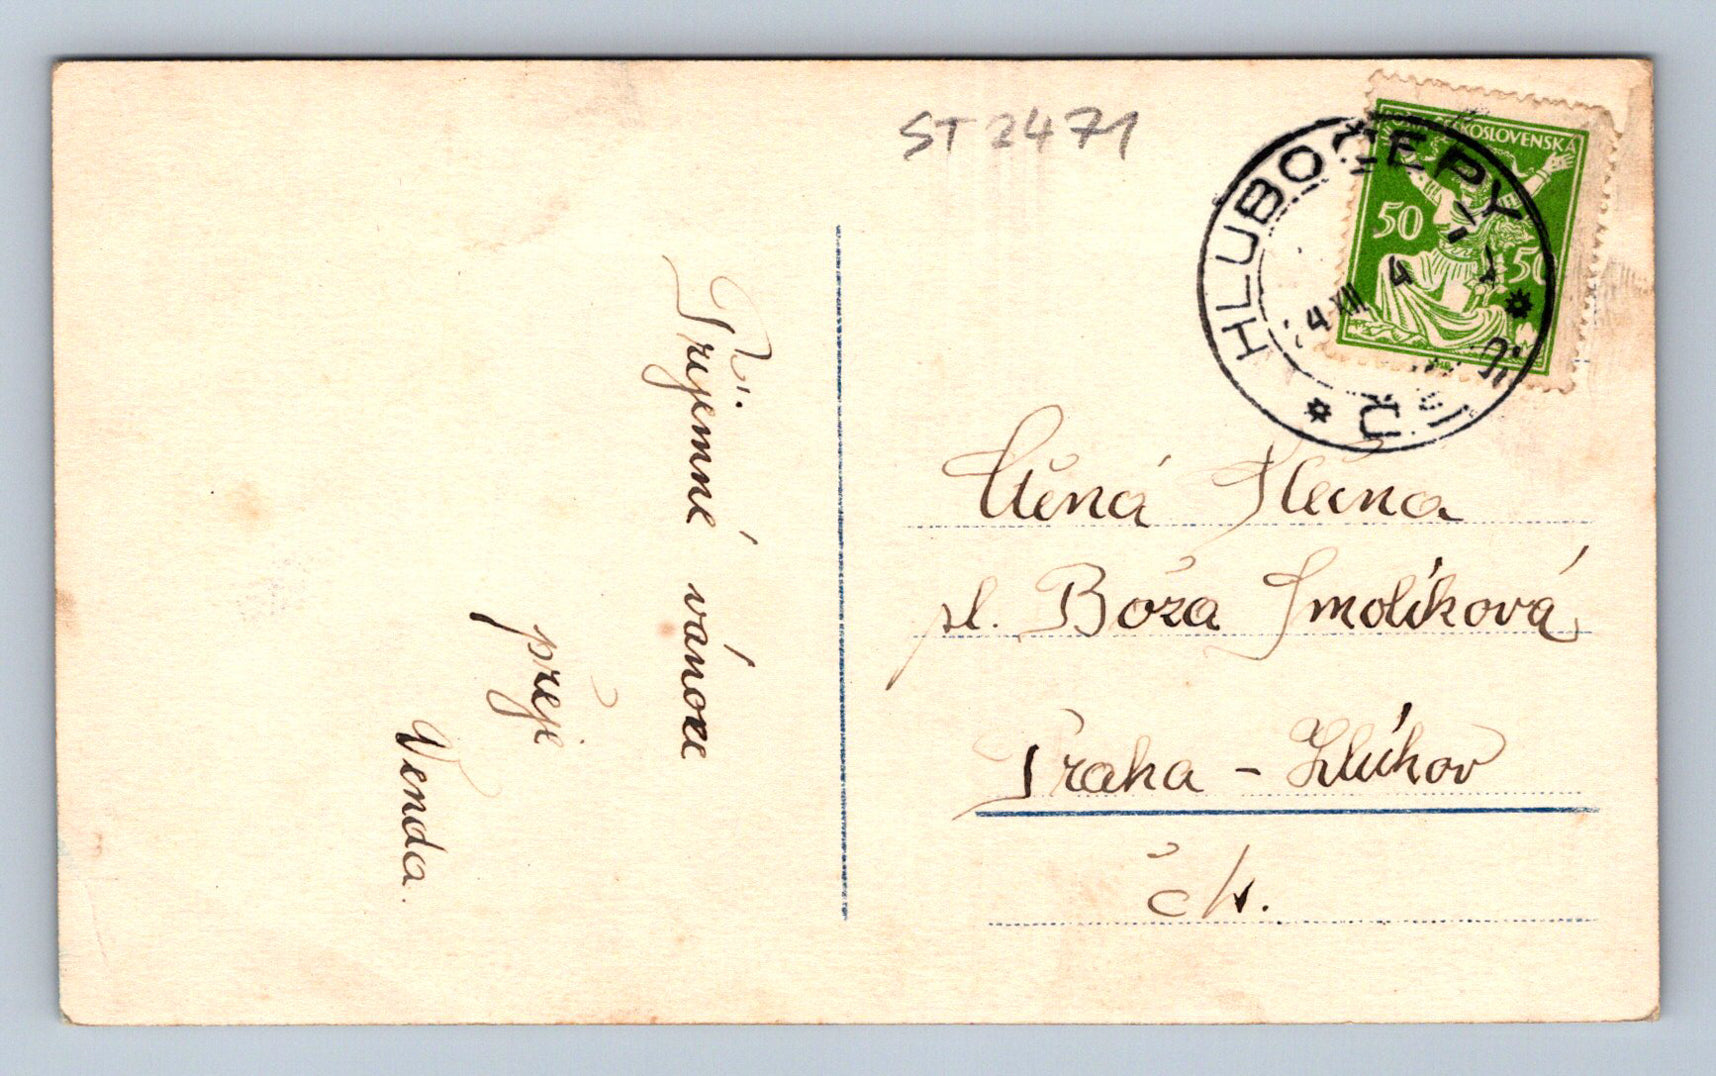 Příjemné vánoce
přeje
Venda.
ST 2471
ČESKOSLOVENSKÁ
50 50
HLUBOČEPY
4 XII 4
Ctěná Slečna
sl. Boža Smolíková
Praha - Zlíchov
čp.